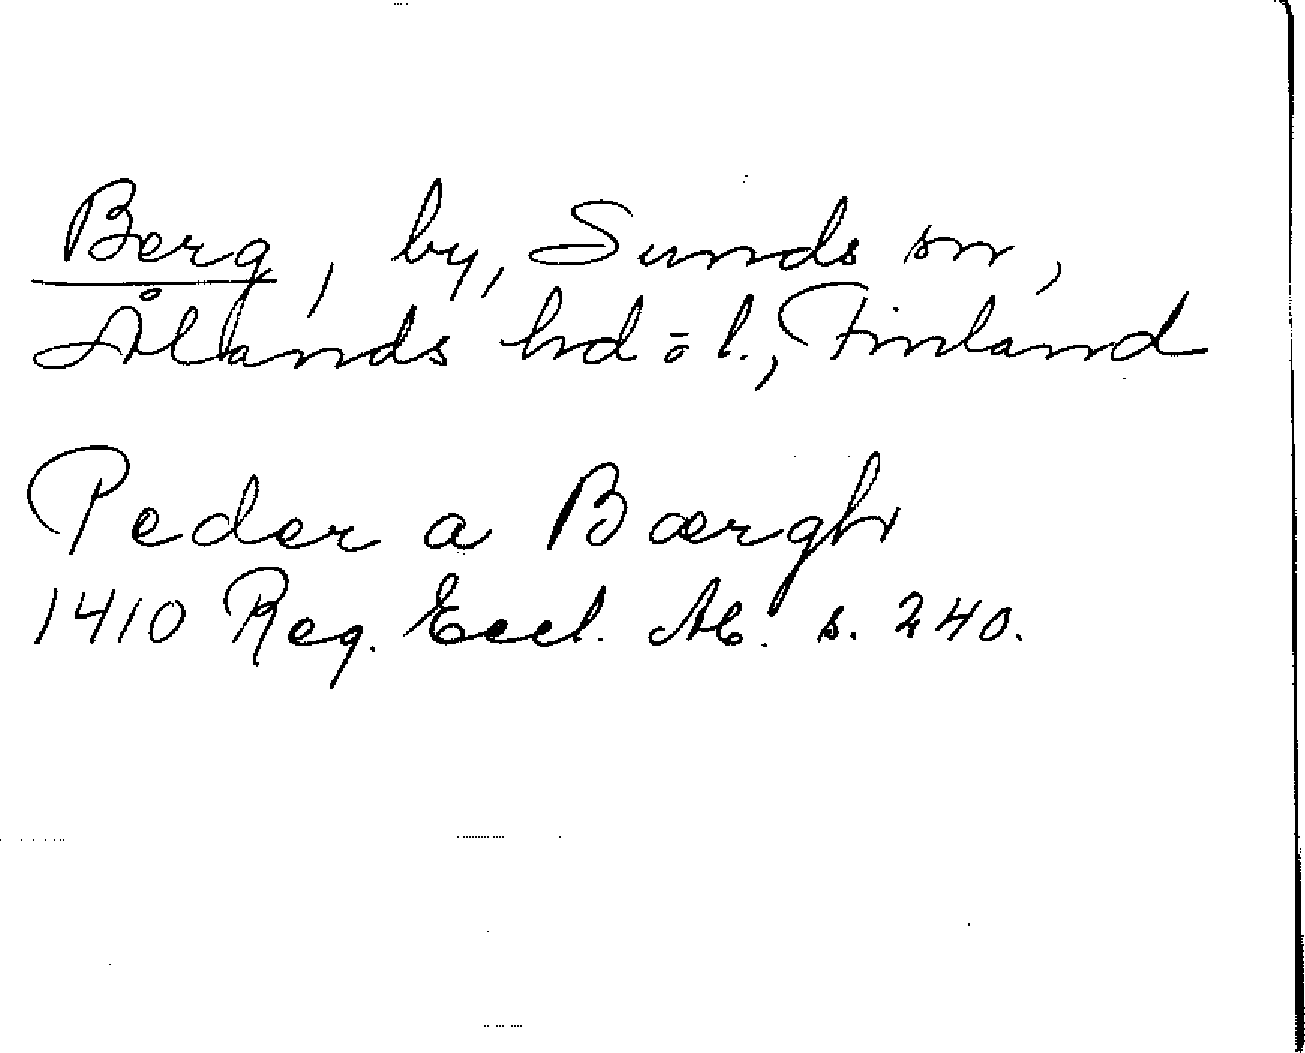 Berg, by, Sunds sn,
Ålands hd o. l., Finland
Peder a Bærgh
1410 Reg. Eccl. Ab. s. 240.